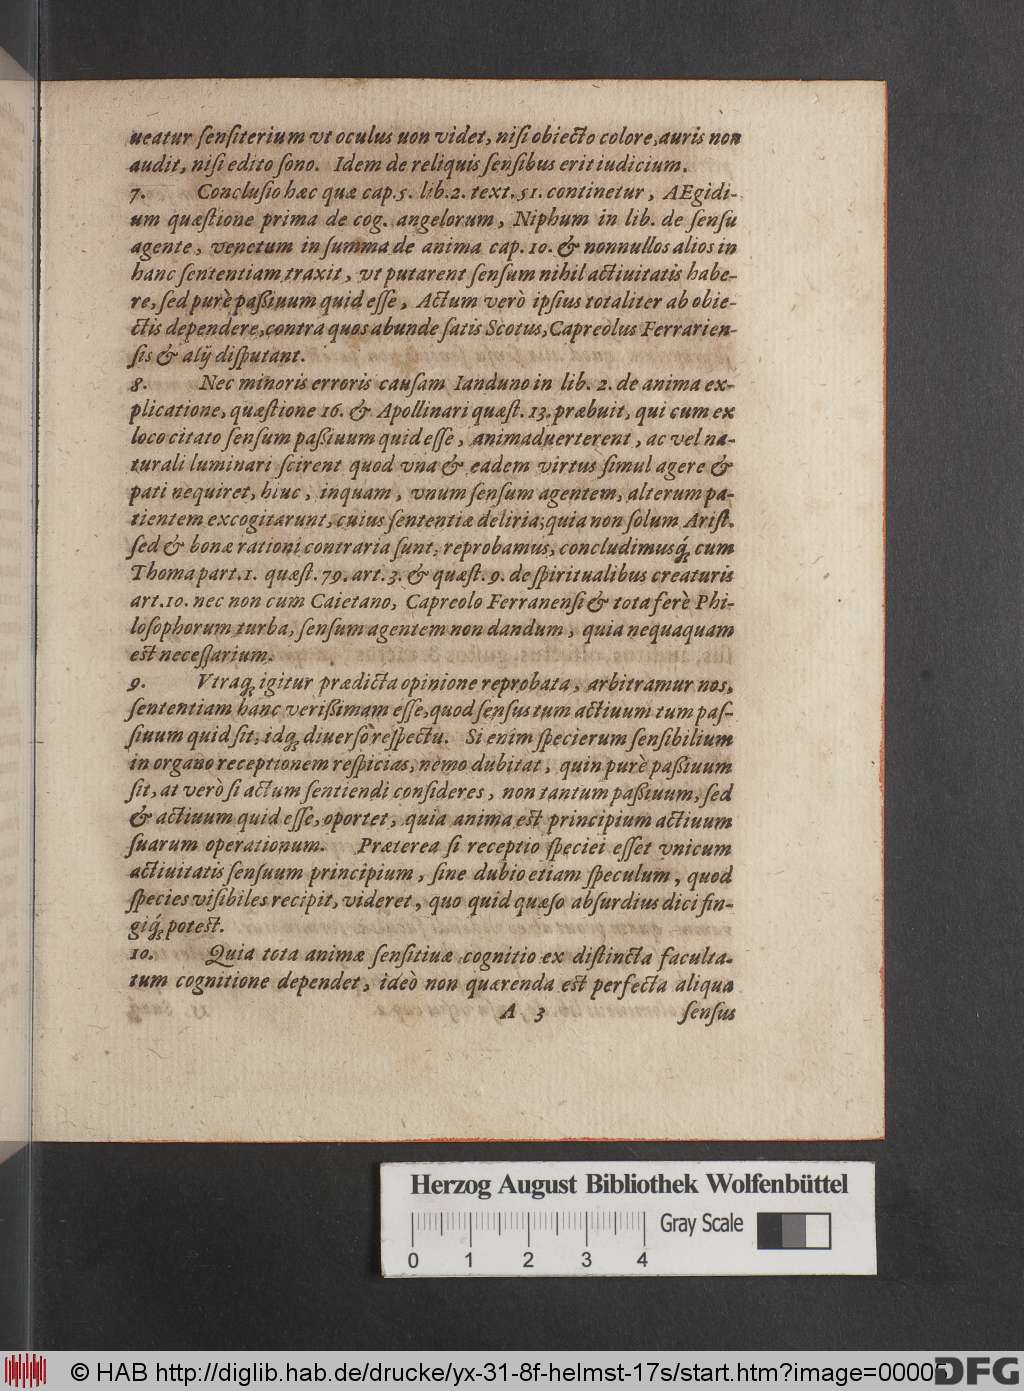 ueatur ſenſiterium vt oculus uon videt, niſi obiecto colore, auris non
audit, niſi edito ſono. Idem de reliquis ſenſibus erit iudicium.
7. Concluſio hæc quæ cap. 5. lib. 2. text. 51. continetur, AEgidi-
um quæſtione prima de cog. angelorum, Niphum in lib. de ſenſu
agente, venetum in ſumma de anima cap. 10. & nonnullos alios in
hanc ſententiam traxit, vt putarent ſenſum nihil actiuitatis habe-
re, ſed purè paßiuum quid eſſe, Actum verò ipſius totaliter ab obie-
ctis dependere, contra quos abunde ſatis Scotus, Capreolus Ferrarien-
ſis & alij diſputant.
8. Nec minoris erroris cauſam Ianduno in lib. 2. de anima ex-
plicatione, quæſtione 16. & Apollinari quæſt. 13. præbuit, qui cum ex
loco citato ſenſum paßiuum quid eſſe, animaduerterent, ac vel na-
turali luminari ſcirent quod vna & eadem virtus ſimul agere &
pati nequiret, hiuc, inquam, vnum ſenſum agentem, alterum pa-
tientem excogitarunt, cuius ſententiæ deliria; quia non ſolum Ariſt.
ſed & bonæ rationi contraria ſunt, reprobamus, concludimusq́; cum
Thoma part. 1. quæſt. 79. art. 3. & quæſt. 9. de ſpiritualibus creaturis
art. 10. nec non cum Caietano, Capreolo Ferranenſi & tota ferè Phi-
loſophorum turba, ſenſum agentem non dandum, quia nequaquam
est neceſſarium.
9. Vtraq; igitur prædicta opinione reprobata, arbitramur nos,
ſententiam hanc verißimam eſſe, quod ſenſus tum actiuum tum paſ-
ſiuum quid ſit, idq; diuerſo reſpectu. Si enim ſpecierum ſenſibilium
in organo receptionem reſpicias, nemo dubitat, quin purè paßiuum
ſit, at verò ſi actum ſentiendi conſideres, non tantum paßiuum, ſed
& actiuum quid eſſe, oportet, quia anima est principium actiuum
ſuarum operationum. Præterea ſi receptio ſpeciei eſſet vnicum
actiuitatis ſenſuum principium, ſine dubio etiam ſpeculum, quod
ſpecies viſibiles recipit, videret, quo quid quæſo abſurdius dici fin-
giq́; potest.
10. Quia tota animæ ſenſitiuæ cognitio ex diſtincta faculta-
tum cognitione dependet, ideò non quærenda est perfecta aliqua
A 3 ſenſus
Herzog August Bibliothek Wolfenbüttel
Gray Scale
0 1 2 3 4
© HAB http://diglib.hab.de/drucke/yx-31-8f-helmst-17s/start.htm?image=00005
DFG